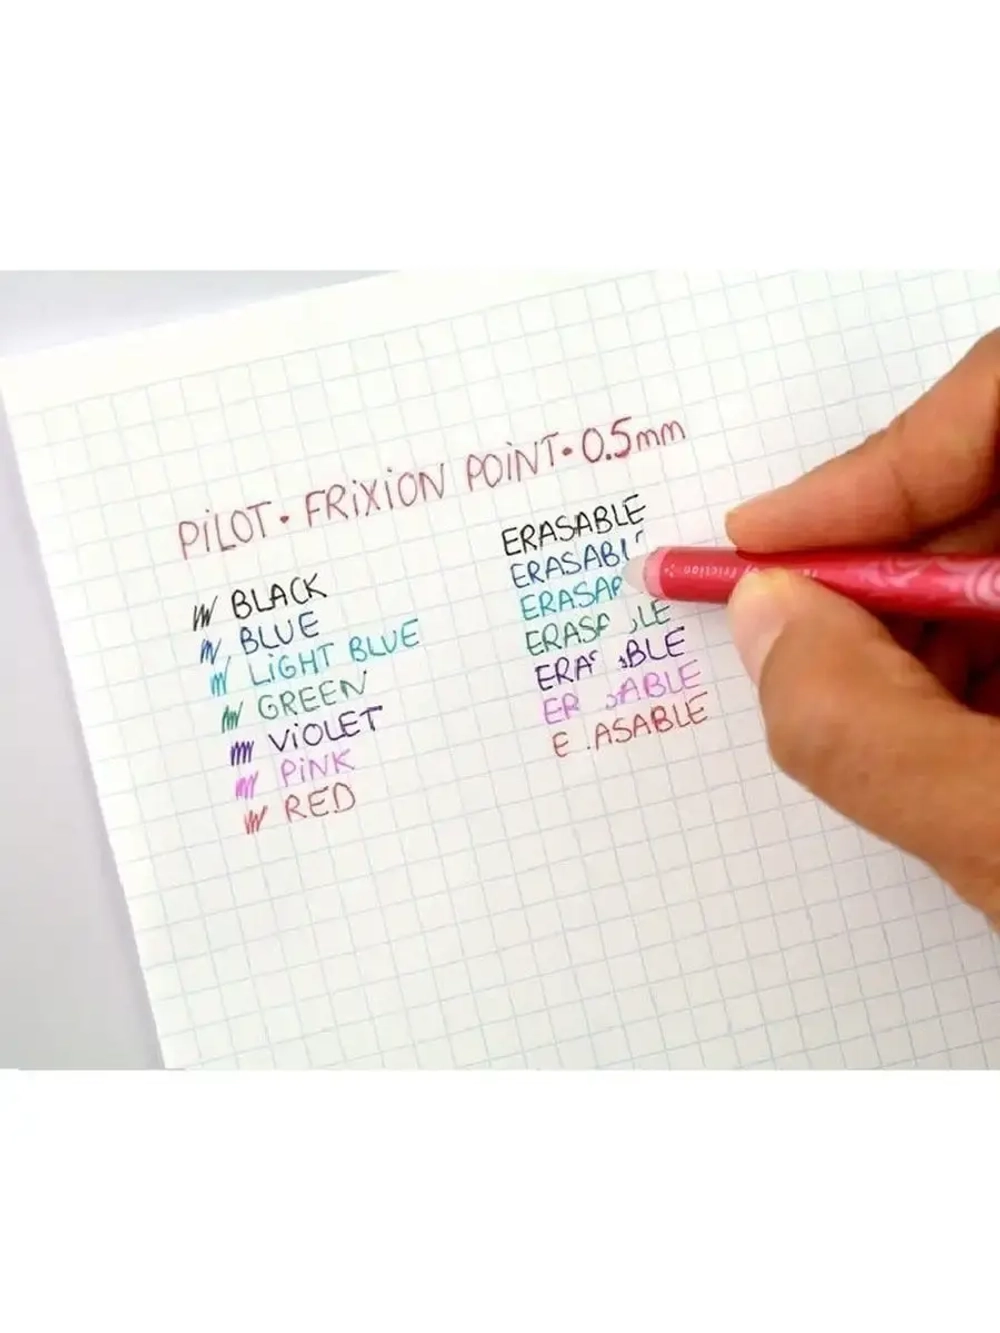 PiLOT · FRiXiON POiNT · 0.5mm
BLACK
BLUE
LiGHT BLUE
GREEN
ViOLET
PiNK
RED
ERASABLE
ERASABL
ERASA
ERAS LE
ERA BLE
ER ABLE
E ASABLE
friction